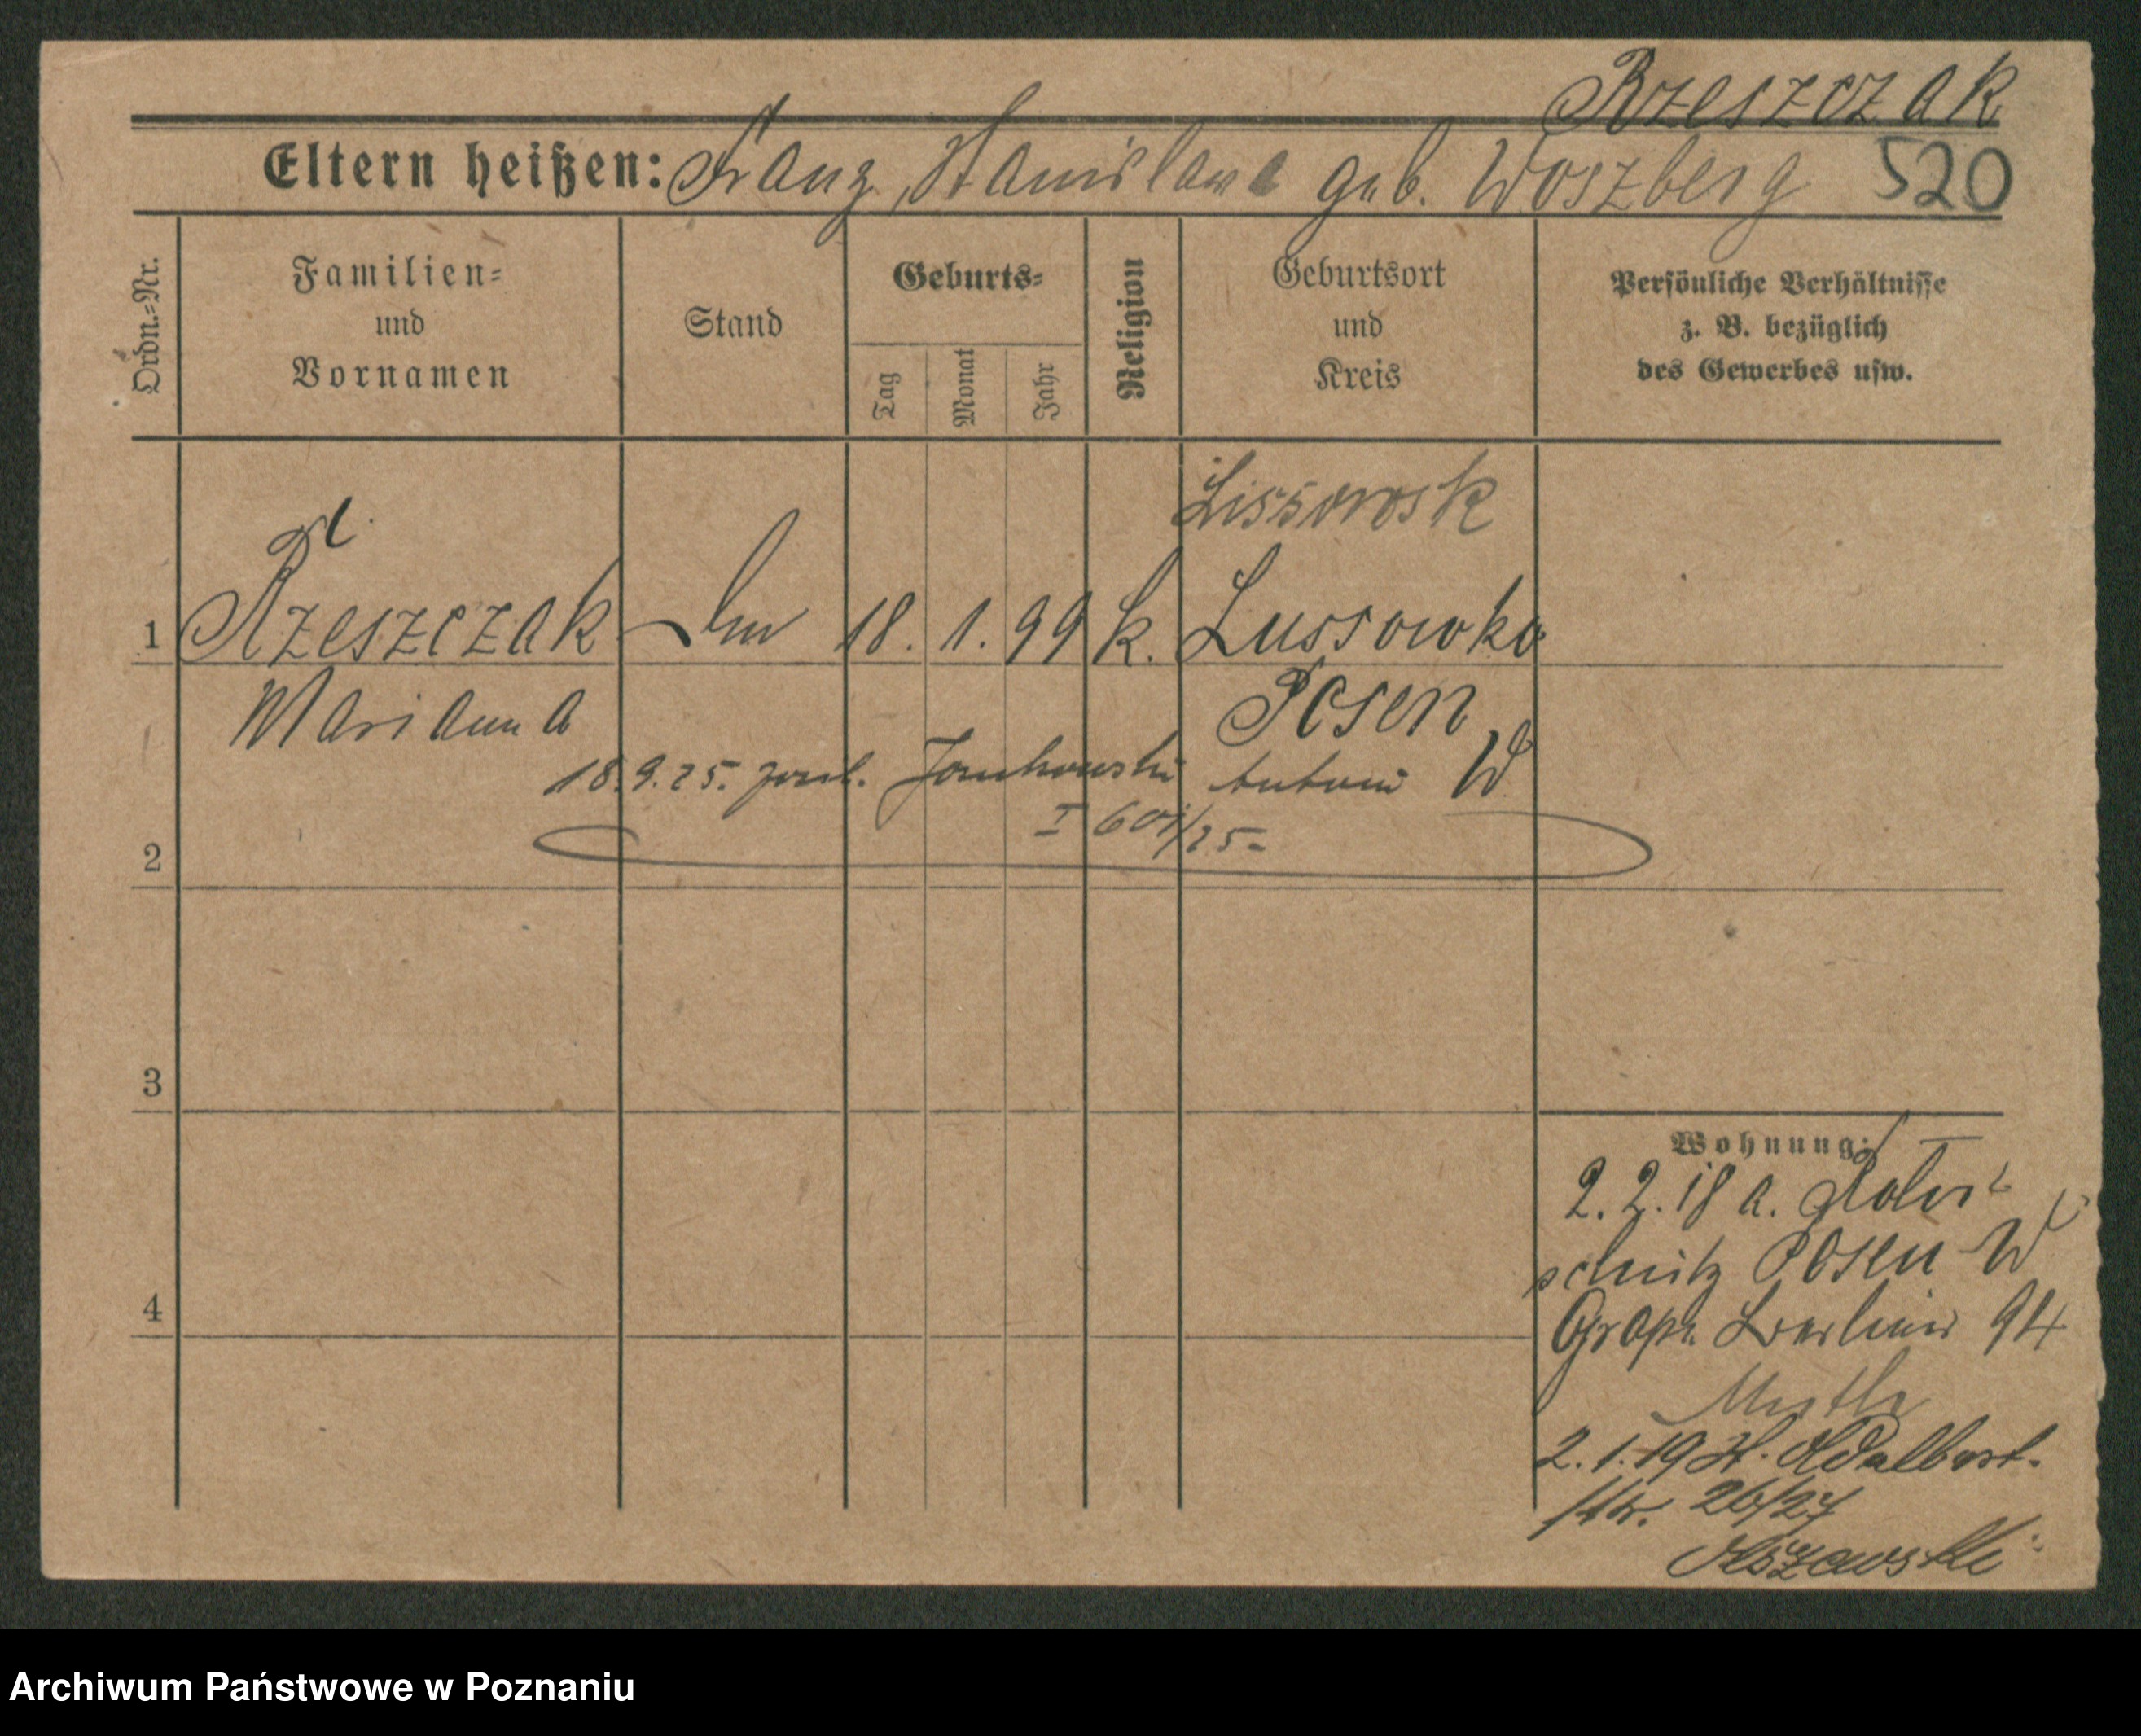 Rzeszczak
Eltern heißen: Franz, Stanislawa geb. Woszberg 520
Ordn.=Nr.
Familien=
und
Vornamen
Stand
Geburts=
Tag
Monat
Jahr
Religion
Geburtsort
und
Kreis
Persönliche Verhältnisse
z. B. bezüglich
des Gewerbes usw.
1 Rzeszczak 18. 1. 99 k. Lussowko
Marianna Posen W
18.9.25. Jankowski Antoni
I 601/25
2
3
4
Wohnung:
2.2.18 a.
Posen W
Berliner 94
2.1.19 Adalbert-
str. 26/27
Archiwum Państwowe w Poznaniu